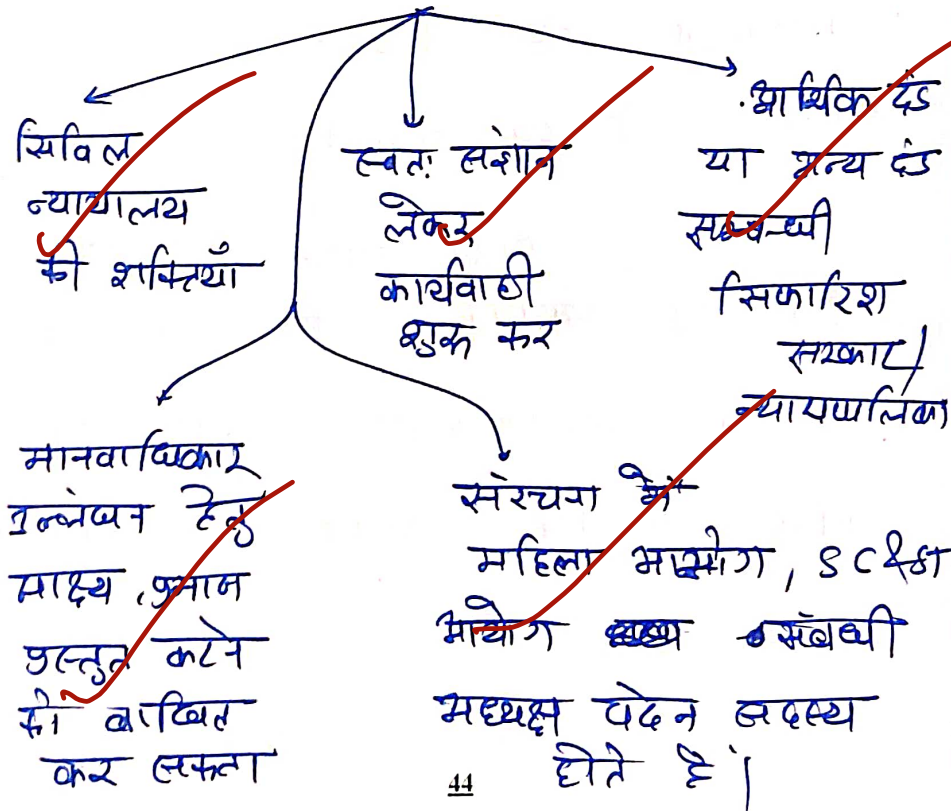 सिविल
न्यायालय
की शक्तियाँ
स्वतः संज्ञान
लेकर
कार्यवाही
शुरू कर
आर्थिक दंड
या अन्य दंड
सम्बन्धी
सिफारिश
सरकार/
न्यायपालिका
मानवाधिकार
उल्लंघन हेतु
साक्ष्य, प्रमाण
प्रस्तुत करने
को बाधित
कर सकता
संरचना में
महिला आयोग, SC &
आयोग संबंधी
अध्यक्ष पदेन सदस्य
होते है।
44